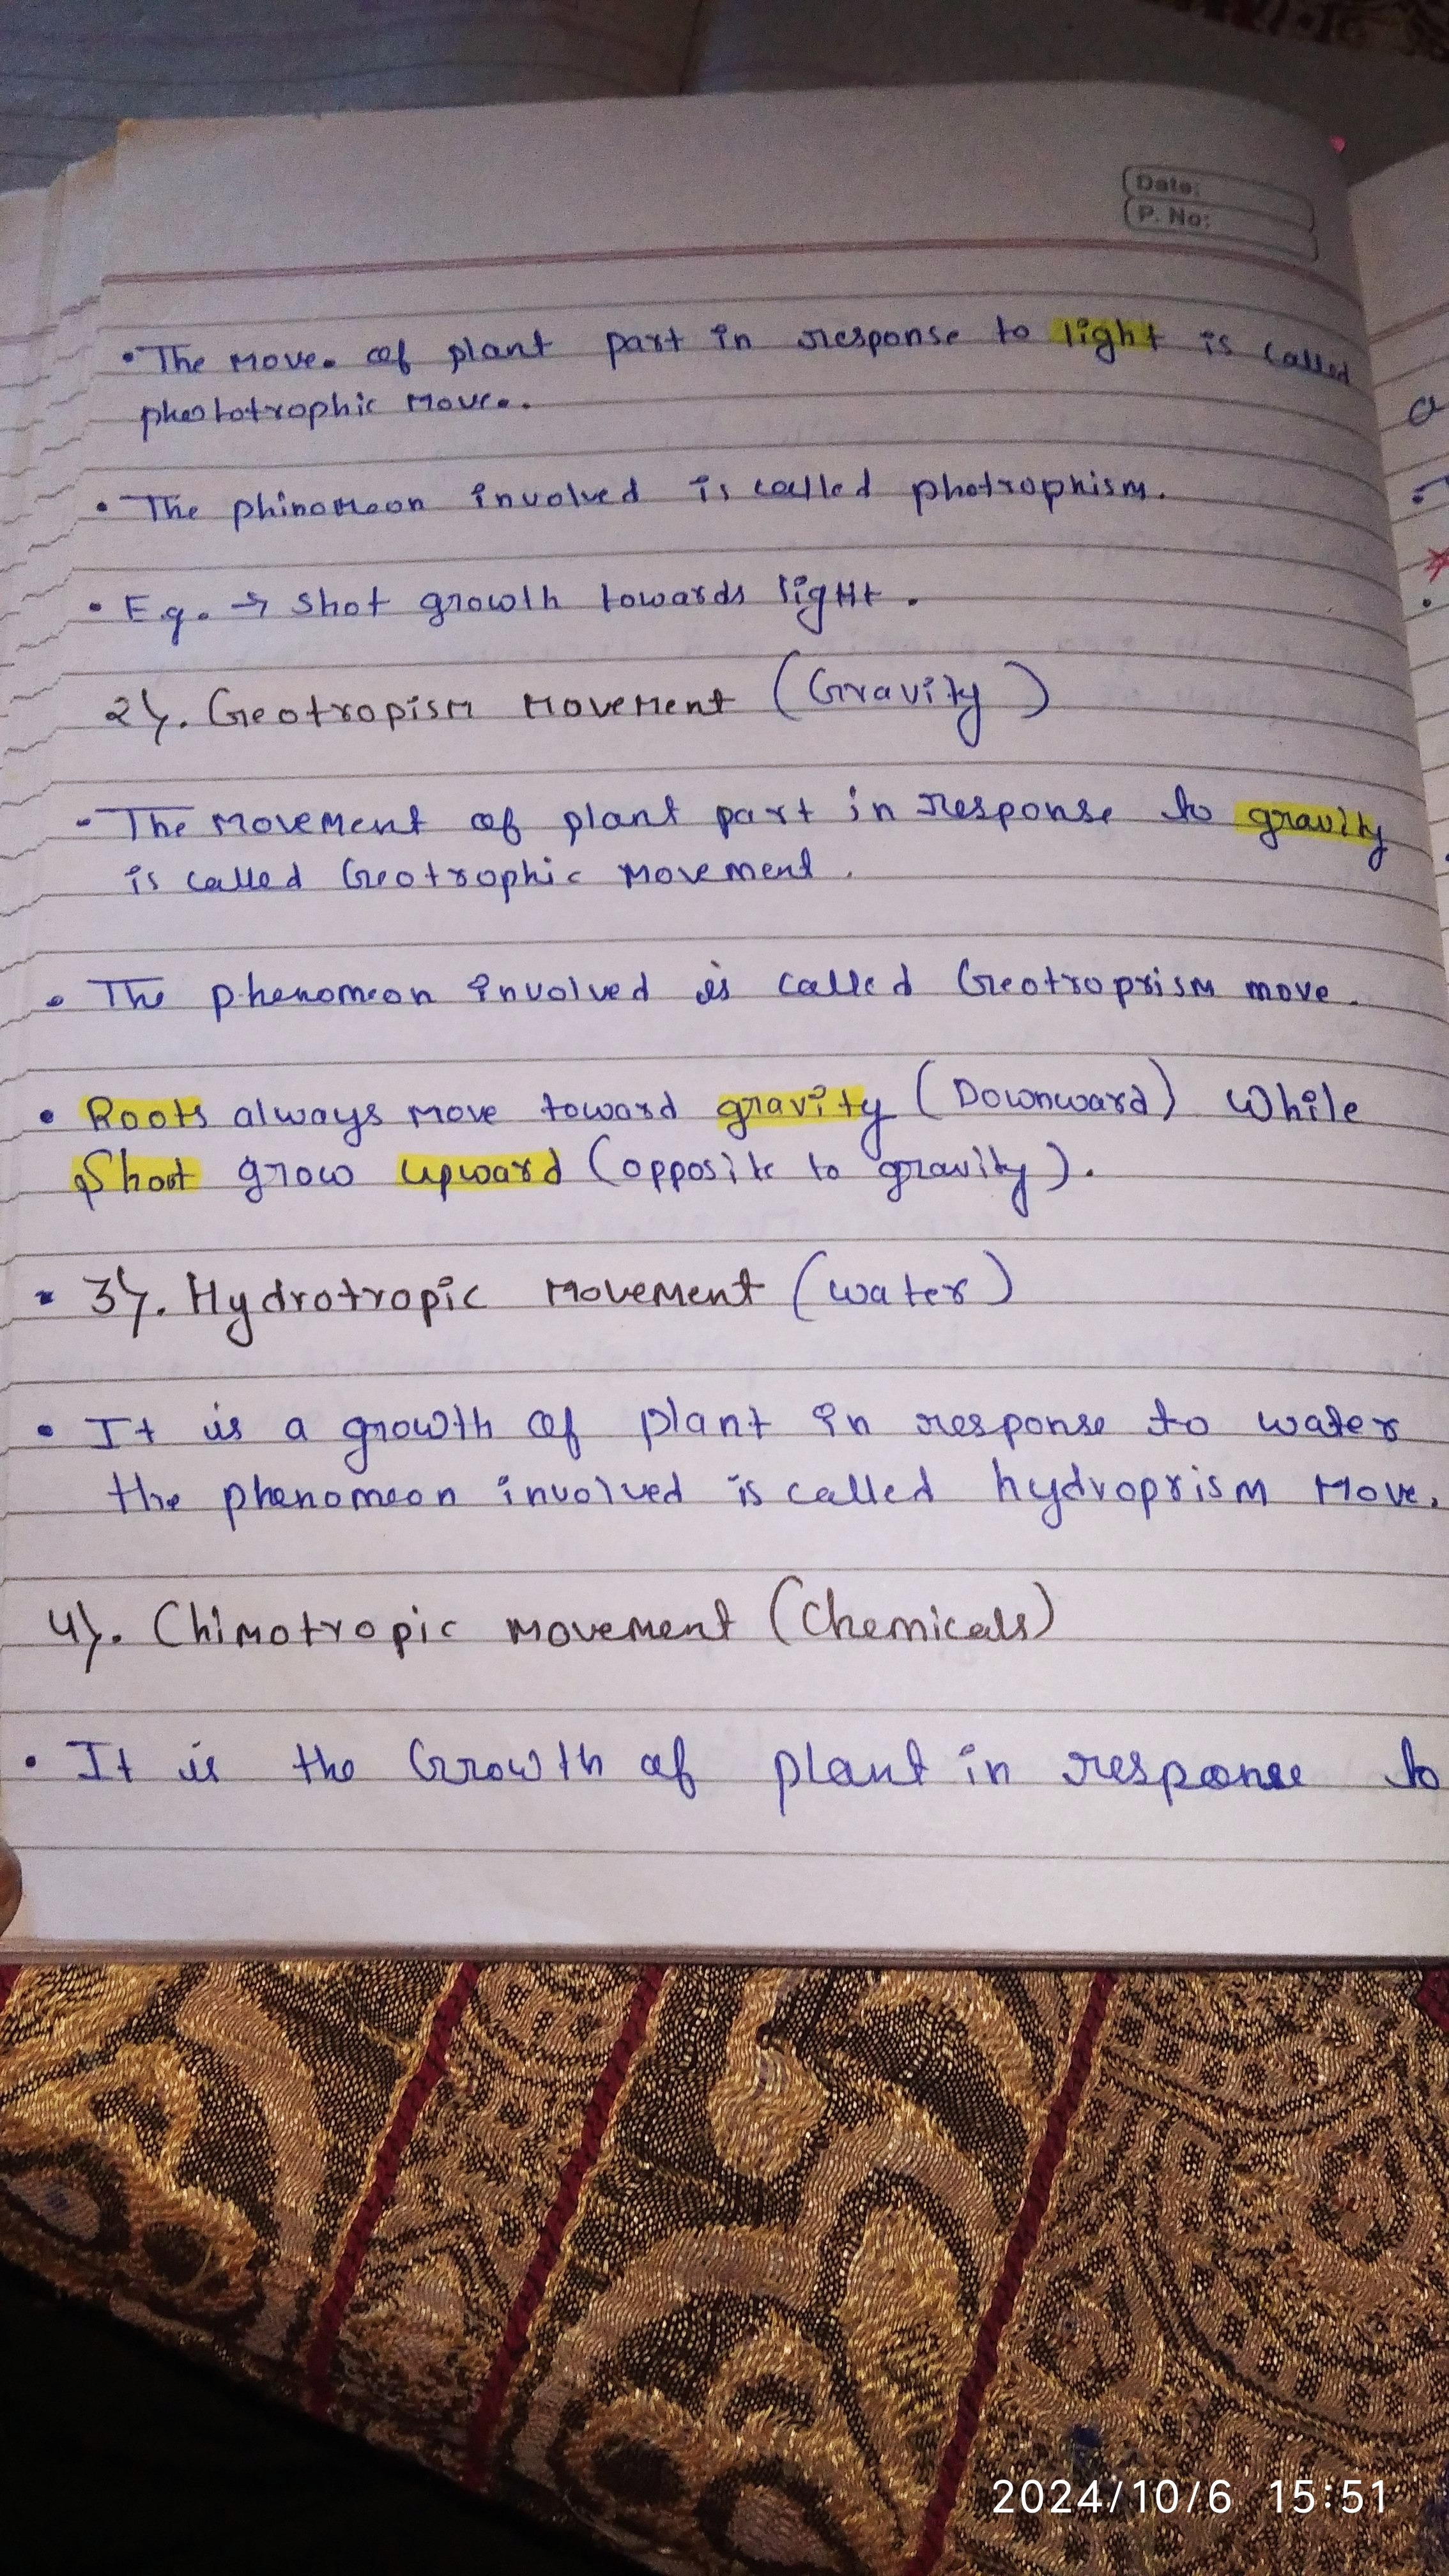 Date:
P. No:
• The Move. of plant part in response to light is called
phototrophic Move..
• The phinomeon involved is called photrophism.
• E.g. → Shot growth towards light.
2). Geotropism Movement (Gravity)
- The Movement of plant part in response to gravity
is called Geotrophic Movement.
• The phenomeon involved is called Geotroprism move.
• Roots always move toward gravity (Downward) While
Shoot grow upward (opposite to gravity).
• 3). Hydrotropic Movement (water)
• It is a growth of plant in response to water
the phenomeon involved is called hydroprism Move.
4). Chimotropic Movement (Chemicals)
• It is the Growth of plant in response to
2024/10/6 15:51